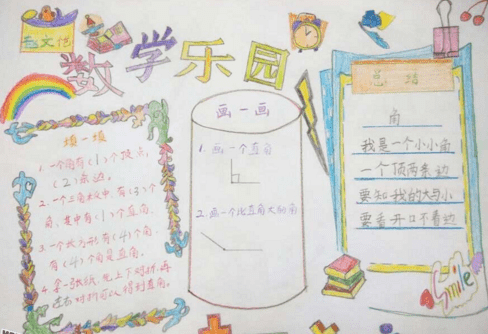 数学乐园
填一填
1. 一个角有(1)个顶点,
(2)条边。
2. 一个三角板中, 有(3)个
角, 其中有(1)个直角
3. 一个长方形有(4)个角,
有(4)个角是直角。
4. 拿一张纸, 先上下对折, 再
左右对折可以得到直角。
画一画
1. 画一个直角
2. 画一个比直角大的角
总结
角
我是一个小小角
一个顶两条边
要知我的大与小
要看开口不看边
Smile